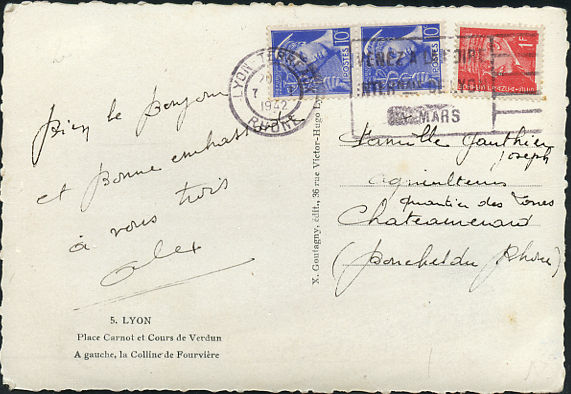 LYON TERREAUX
7
1942
RHONE
VENEZ A LA FOIRE
MARS
10
POSTES
10
POSTES
1F
Bien le bonjour
et bonne embrassade
à vous trois
Alex
5. LYON
Place Carnot et Cours de Verdun
A gauche, la Colline de Fourvière
X. Goutagny, édit., 36 rue Victor-Hugo
Famille Gauthier
Joseph
agriculteurs
quartier des
Chateaurenard
(Bouches du Rhone)